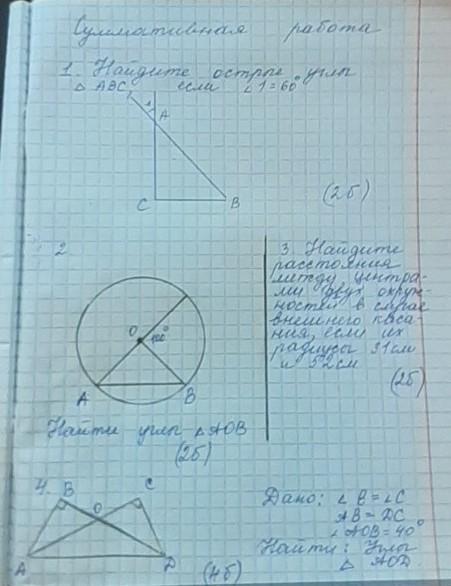 Суммативная работа
1. Найдите острые углы
△ ABC, если ∠1=60°
1
A
C
B
(2б)
2.
O
100°
A
B
Найти углы △AOB
(2б)
3. Найдите
расстояния
между центра-
ми двух окруж-
ностей в случае
внешнего каса-
ния, если их
радиусы 31см
и 52см
(2б)
4.
B
C
O
A
D
(4б)
Дано: ∠B=∠C
AB=DC
∠AOB=40°
Найти: Углы
△ AOD